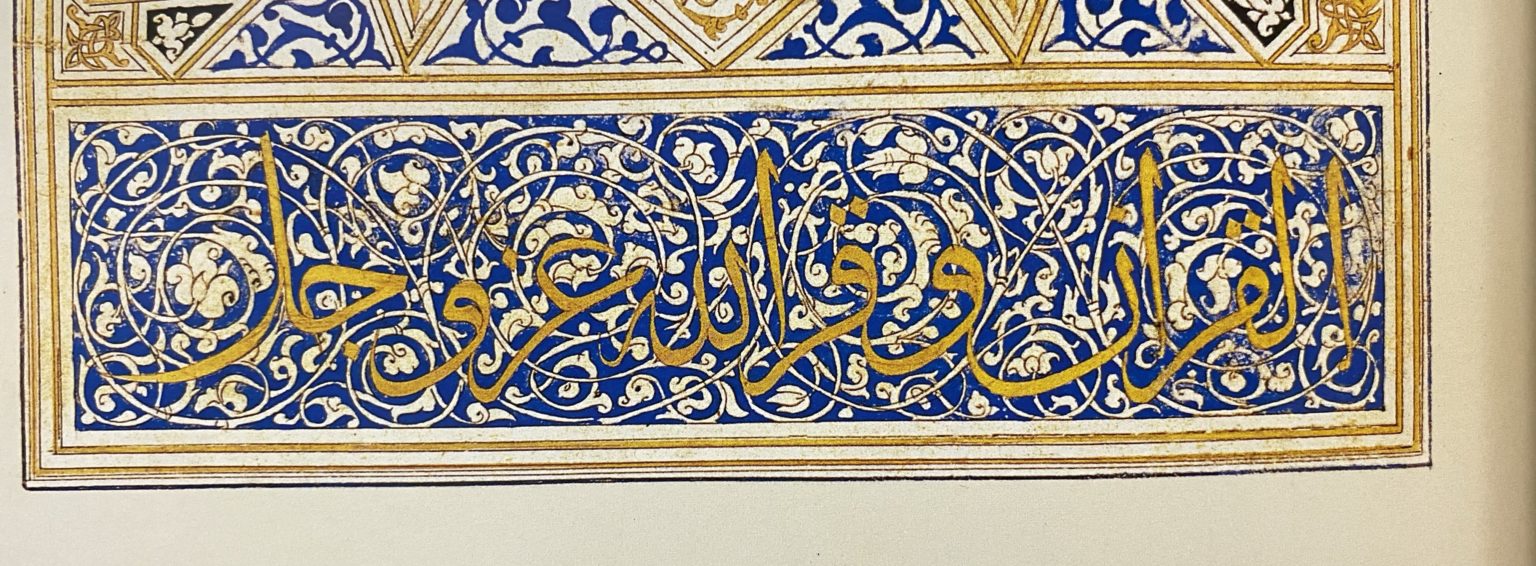 القران وقر الله عز وجل